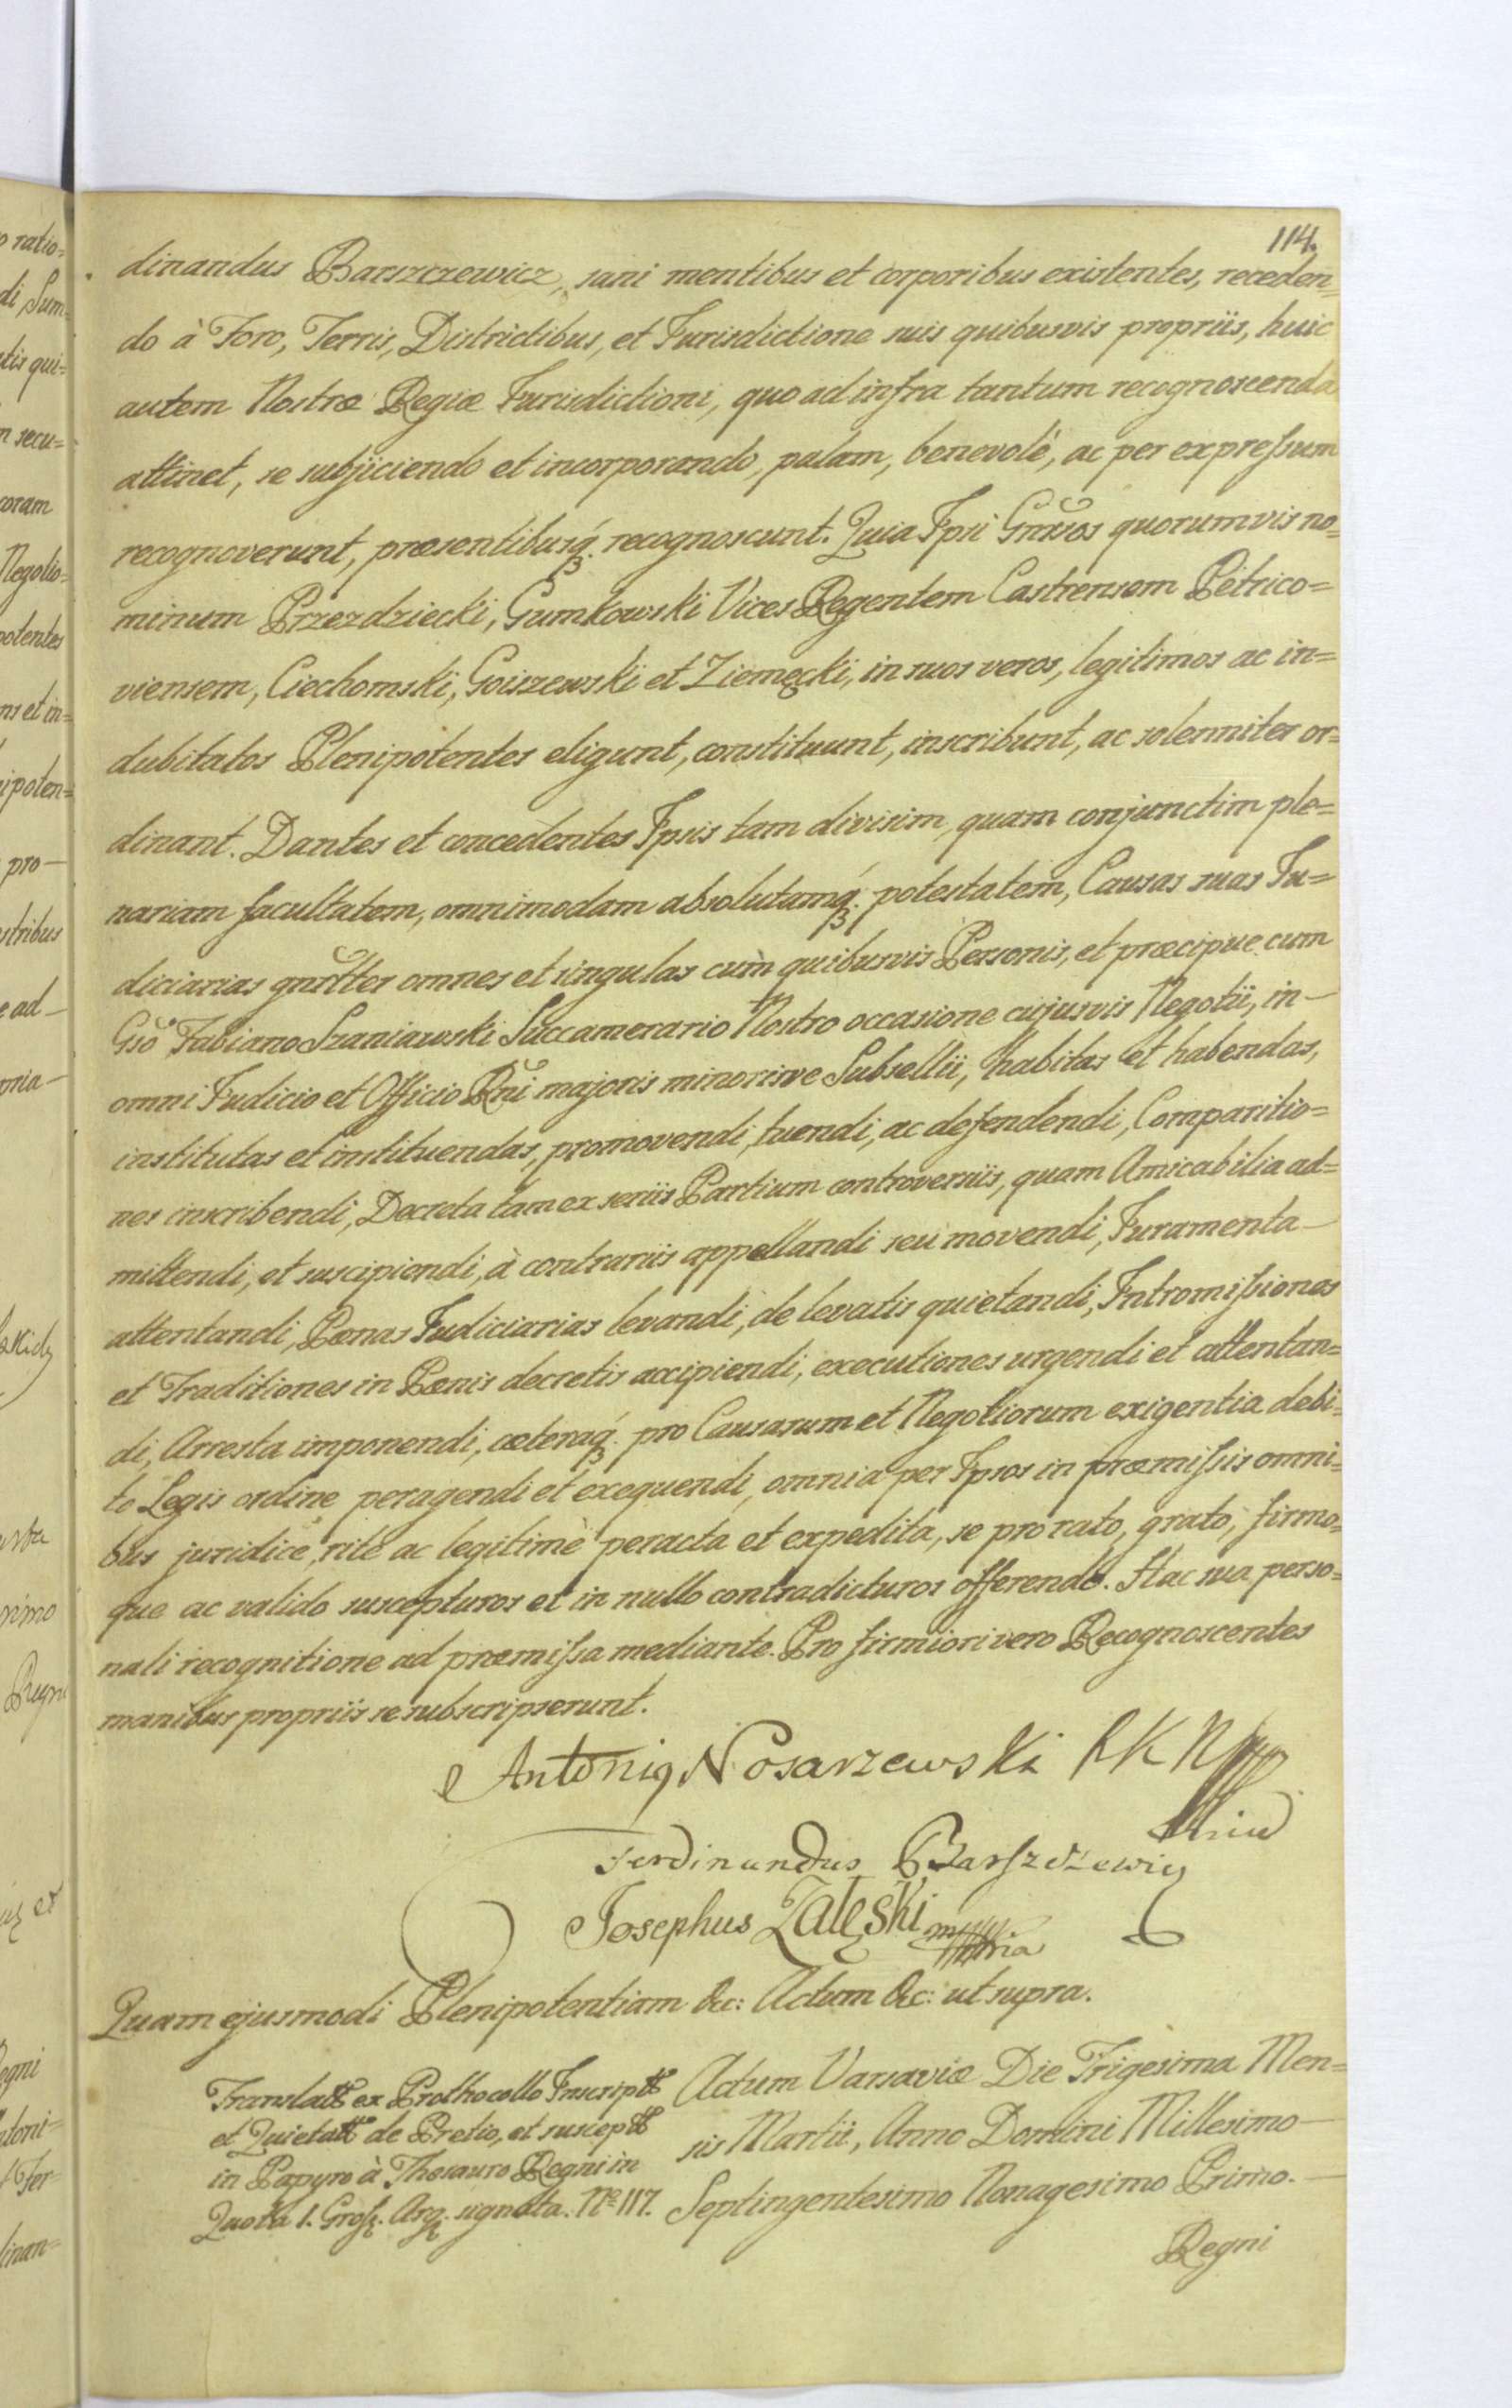 114.
dinandus Barszczewicz, sani mentibus et corporibus existentes, receden=
do à Foro, Terris, Districtibus, et Jurisdictione suis quibusvis propriis, huic
autem Nostræ Regiæ Jurisdictioni, quo ad infra tantum recognoscenda
attinet, se subjiciendo et incorporando, palam, benevolè, ac per expressum
recognoverunt, præsentibusq́; recognoscunt. Quia Ipsi Gnrsos quorumvis no=
minum Przezdziecki, Gumkowski Vices Regentem Castrensem Petrico=
viensem, Ciechomski, Goiszewski et Ziemęcki, in suos veros, legitimos ac in=
dubitatos Plenipotentes eligunt, constituunt, inscribunt, ac solenniter or=
dinant. Dantes et concedentes Ipsis tam divisim, quam conjunctim ple=
nariam facultatem, omnimodam absolutamq́; potestatem, Causas suas Ju=
diciarias gnrltter omnes et singulas cum quibusvis Personis, et præcipue cum
Gso Fabiano Szaniawski Succamerario Nostro occasione cujusvis Negotii, in—
omni Judicio et Officio Rni majoris minorisve Subsellii, habitas et habendas,
institutas et instituendas, promovendi, tuendi, ac defendendi, Comparitio=
nes inscribendi, Decreta tam ex seriis Partium controversiis, quam Amicabilia ad=
mittendi, et suscipiendi, à contrariis appellandi seu movendi, Juramenta—
attentandi, Pænas Judiciarias levandi, de levatis quietandi, Intromissiones
et Traditiones in Pænis decretis accipiendi, executiones urgendi et attentan=
di, Arresta imponendi, cæteraq́; pro Causarum et Negotiorum exigentia debi=
to Legis ordine peragendi et exequendi, omnia per Ipsos in præmissis omni=
bus juridice, ritè ac legitimè peracta et expedita, se pro rato, grato, firmo=
que ac valido suscepturos et in nullo contradicturos offerendo. Hac sua perso=
nali recognitione ad præmissa mediante. Pro firmiori vero Recognoscentes
manibus propriis se subscripserunt.
Antonig Nosarzewski
Ferdinandus Barszczewicz
Josephus Załęski
Quam ejusmodi Plenipotentiam &c: Actum &c: ut supra.
Translatt ex Prothocollo Inscriptt
et Quietatt de Pretio, et susceptt
in Papyro à Thesauro Regni in
Quota 1. Gross. Arg. signata. No 117.
Actum Varsaviæ Die Trigesima Men=
sis Martii, Anno Domini Millesimo—
Septingentesimo Nonagesimo Primo.—
Regni